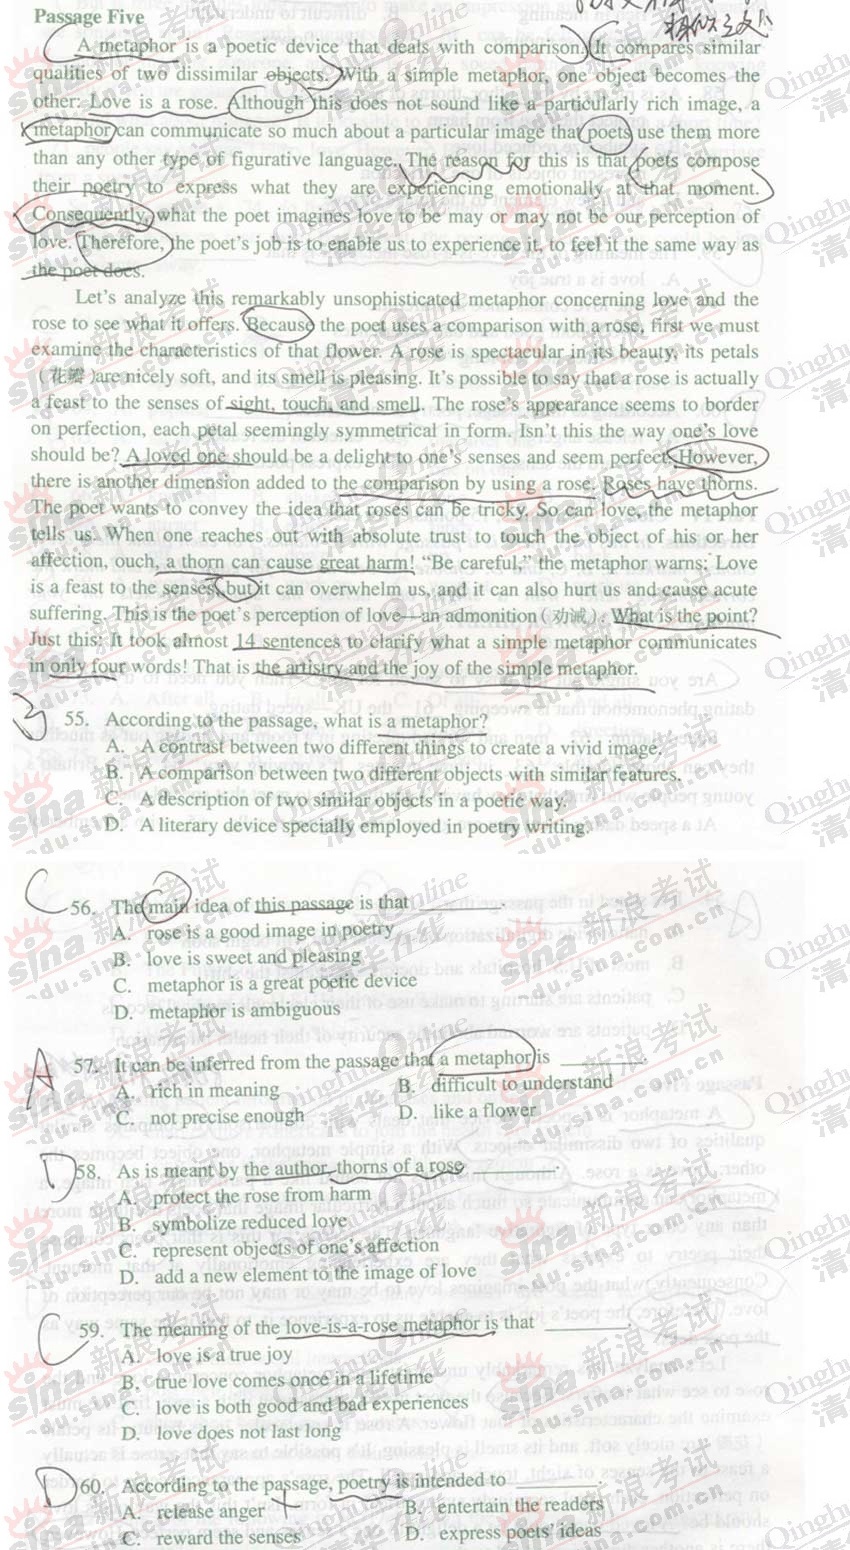 相似之处
Passage Five
A metaphor is a poetic device that deals with comparison. It compares similar
qualities of two dissimilar objects. With a simple metaphor, one object becomes the
other: Love is a rose. Although this does not sound like a particularly rich image, a
metaphor can communicate so much about a particular image that poets use them more
than any other type of figurative language. The reason for this is that poets compose
their poetry to express what they are experiencing emotionally at that moment.
Consequently, what the poet imagines love to be may or may not be our perception of
love. Therefore, the poet's job is to enable us to experience it, to feel it the same way as
the poet does.
Let's analyze this remarkably unsophisticated metaphor concerning love and the
rose to see what it offers. Because the poet uses a comparison with a rose, first we must
examine the characteristics of that flower. A rose is spectacular in its beauty, its petals
(花瓣)are nicely soft, and its smell is pleasing. It's possible to say that a rose is actually
a feast to the senses of sight, touch, and smell. The rose's appearance seems to border
on perfection, each petal seemingly symmetrical in form. Isn't this the way one's love
should be? A loved one should be a delight to one's senses and seem perfect. However,
there is another dimension added to the comparison by using a rose. Roses have thorns.
The poet wants to convey the idea that roses can be tricky. So can love, the metaphor
tells us. When one reaches out with absolute trust to touch the object of his or her
affection, ouch, a thorn can cause great harm! "Be careful," the metaphor warns: Love
is a feast to the senses, but it can overwhelm us, and it can also hurt us and cause acute
suffering. This is the poet's perception of love—an admonition(劝诫). What is the point?
Just this: It took almost 14 sentences to clarify what a simple metaphor communicates
in only four words! That is the artistry and the joy of the simple metaphor.
B 55. According to the passage, what is a metaphor?
A. A contrast between two different things to create a vivid image.
B. A comparison between two different objects with similar features.
C. A description of two similar objects in a poetic way.
D. A literary device specially employed in poetry writing.
C 56. The main idea of this passage is that ________.
A. rose is a good image in poetry
B. love is sweet and pleasing
C. metaphor is a great poetic device
D. metaphor is ambiguous
A 57. It can be inferred from the passage that a metaphor is ________.
A. rich in meaning B. difficult to understand
C. not precise enough D. like a flower
D 58. As is meant by the author, thorns of a rose ________.
A. protect the rose from harm
B. symbolize reduced love
C. represent objects of one's affection
D. add a new element to the image of love
C 59. The meaning of the love-is-a-rose metaphor is that ________.
A. love is a true joy
B. true love comes once in a lifetime
C. love is both good and bad experiences
D. love does not last long
D 60. According to the passage, poetry is intended to ________.
A. release anger B. entertain the readers
C. reward the senses D. express poets' ideas
sina 新浪考试
edu.sina.com.cn
Qinghua Online
清华在线